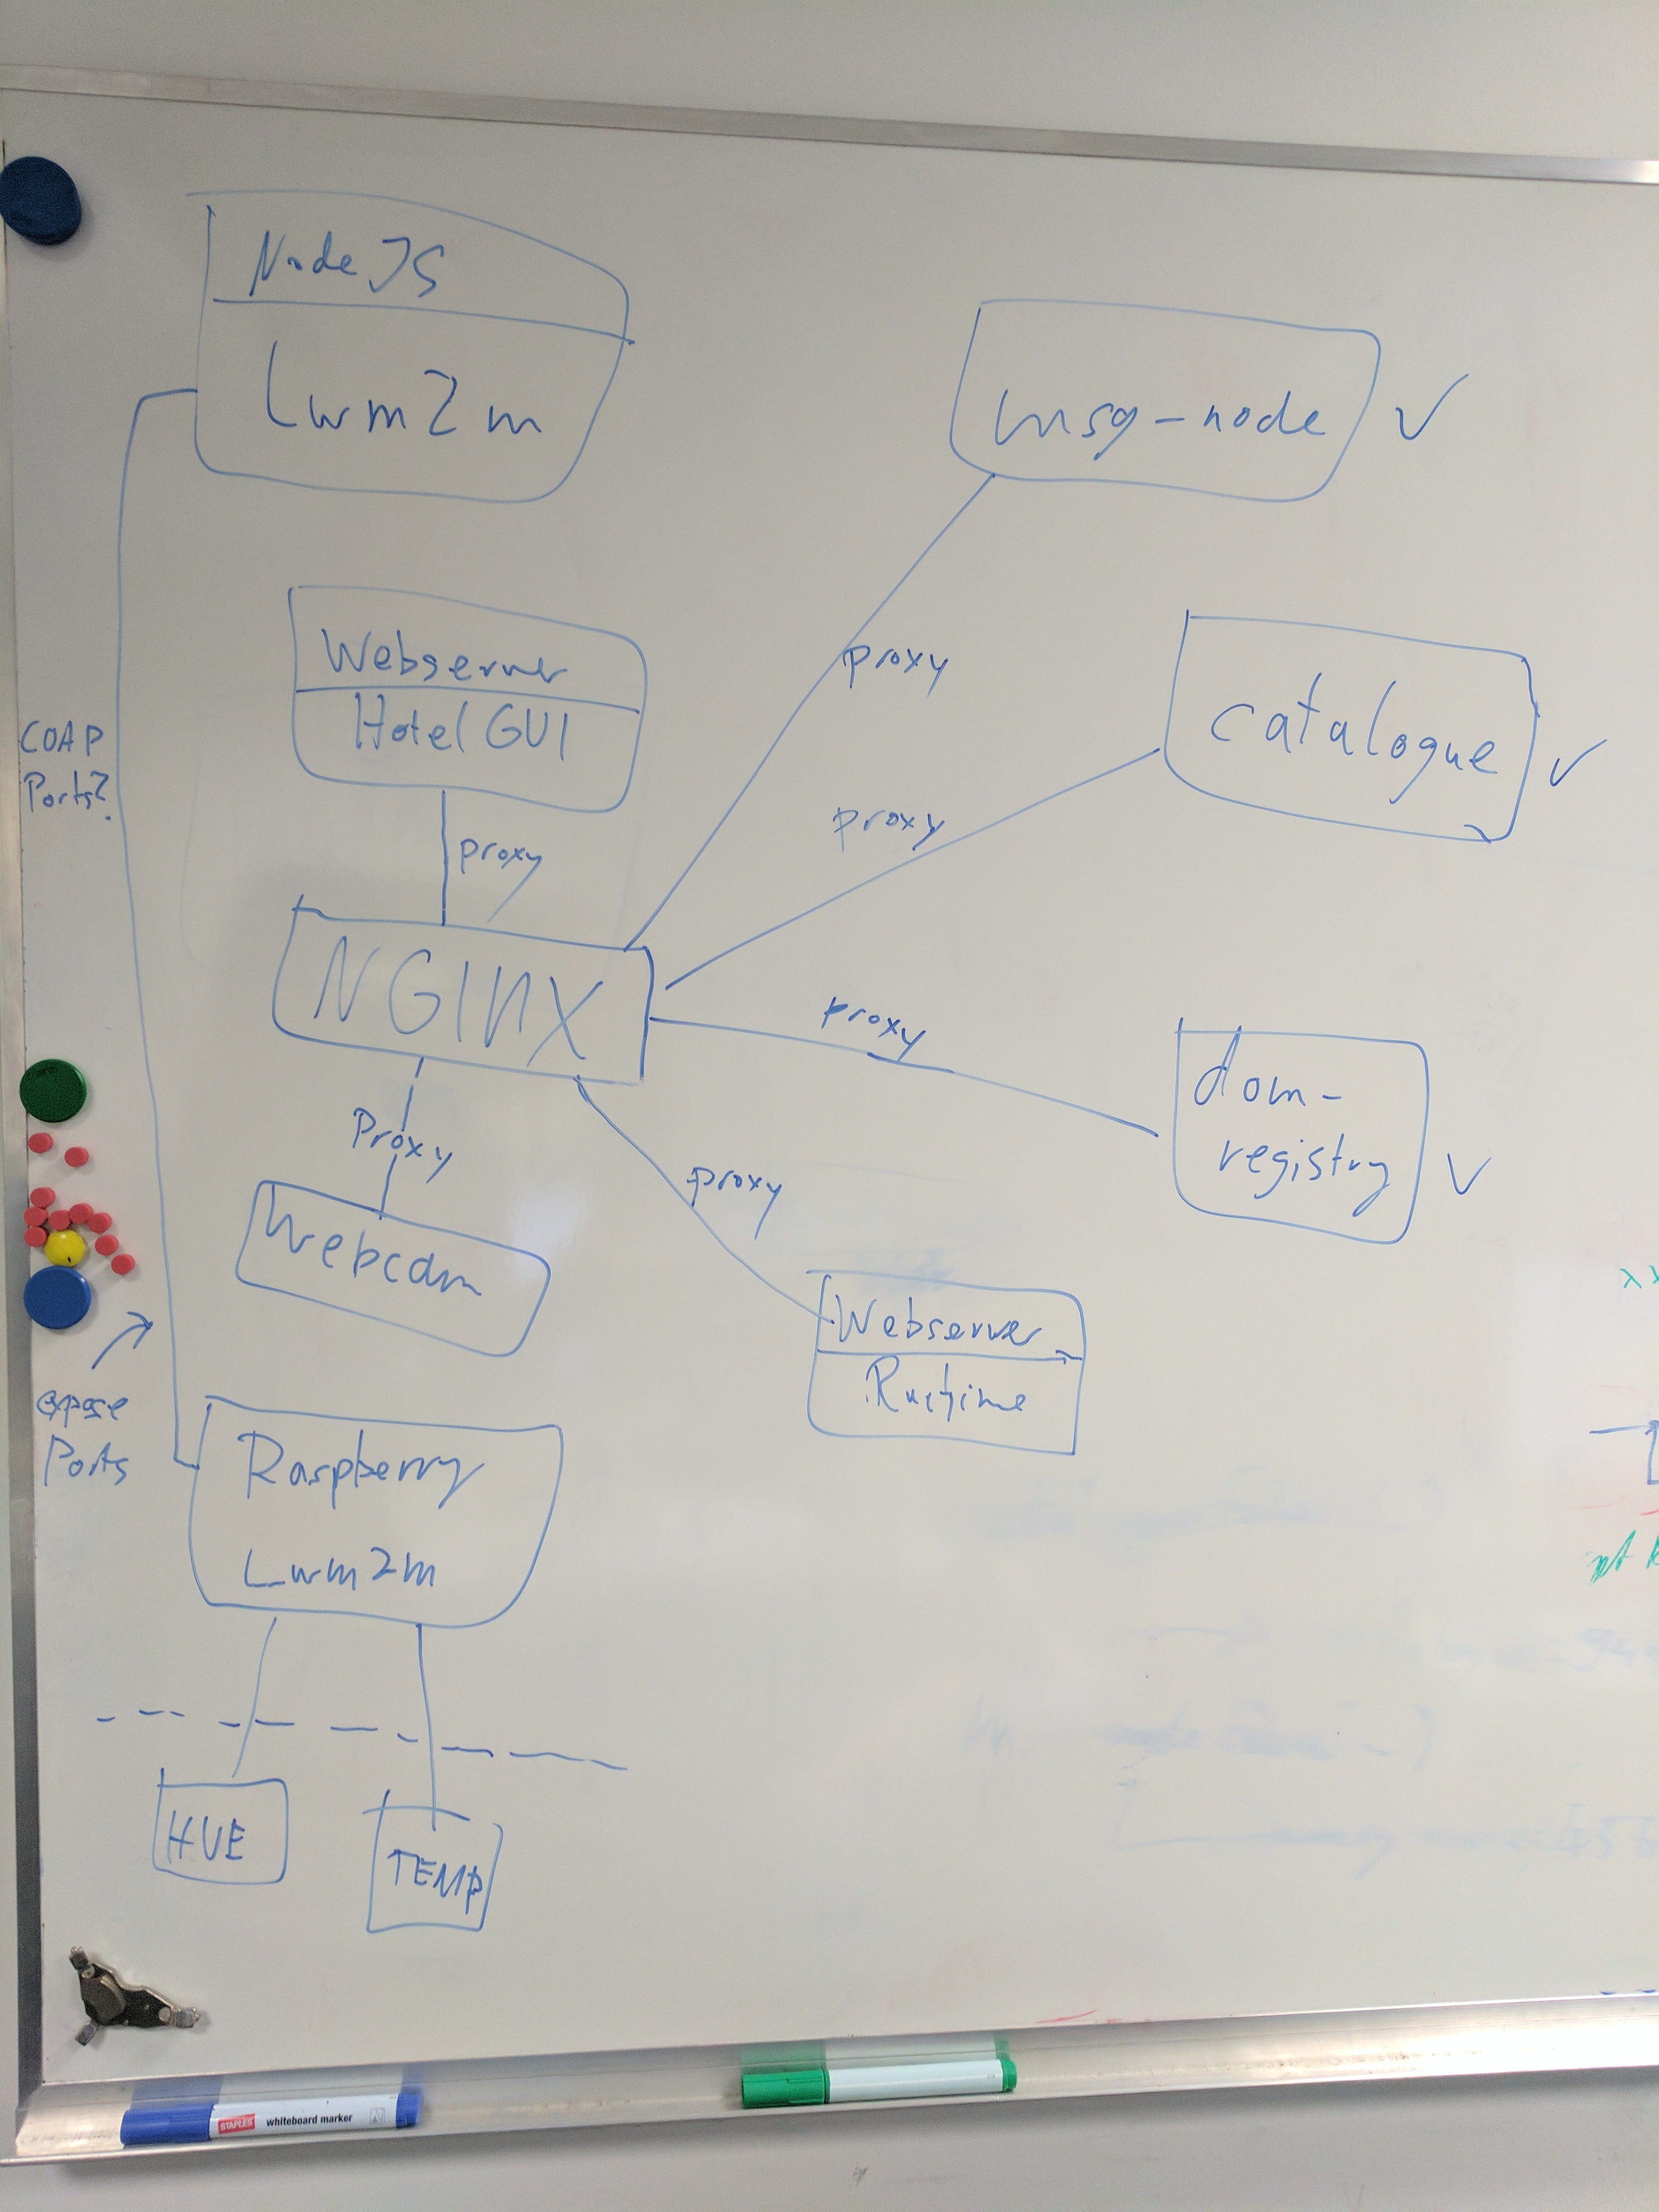 NodeJS
Lwm2m
msg-node
Webserver
Hotel GUI
proxy
catalogue
COAP
Ports?
proxy
proxy
NGINX
proxy
dom-
registry
Proxy
proxy
Webcam
Webserver
Runtime
expose
Ports
Raspberry
Lwm2m
HUE
TEMP
STAPLES whiteboard marker